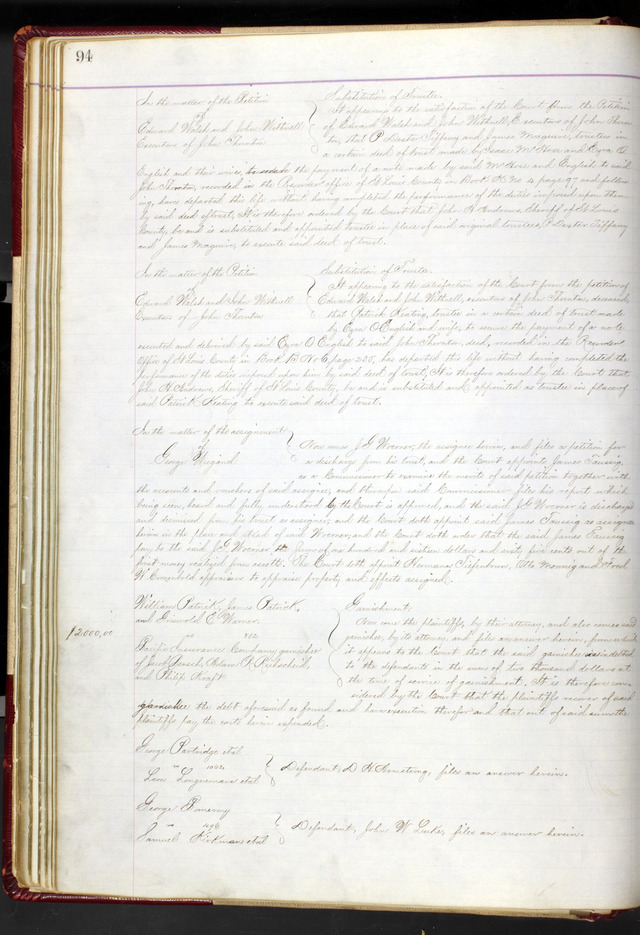 94
In the matter of the Petition
of
Edward Walsh and John Withnell
Executors of John Thornton
Substitution of Trustee.
It appearing to the satisfaction of the Court from the Petition
of Edward Walsh and John Withnell, Executors of John Thorn-
ton, that P Dexter Tiffany and James Maguire, trustees in
a certain deed of trust made by Isaac McHose and Ezra O
English and their wives, to secure the payment of a note made by said McHose and English to said
John Thornton, recorded in the Recorder office of St Louis County in Book No 4 page 97 and follow-
ing, have departed this life without having completed the performance of the duties imposed upon them
by said deed of trust, It is therefore ordered by the Court that John H Andrews, Sheriff of St Louis
County, be and is substituted and appointed trustee in place of said original trustees, P Dexter Tiffany
and James Maguire, to execute said deed of trust.
In the matter of the Petition
of
Edward Walsh and John Withnell
Executors of John Thornton
Substitution of Trustee.
It appearing to the satisfaction of the Court from the petition of
Edward Walsh and John Withnell, executors of John Thornton, deceased,
that Patrick Keating, trustee in a certain deed of trust made
by Ezra O English and wife, to secure the payment of a note
executed and delivered by said Ezra O English to said John Thornton, decd, recorded in the Recorders
Office of St Louis County in Book B No 6, page 235, has departed this life without having completed the
performance of the duties imposed upon him by said deed of trust, It is therefore ordered by the Court that
John H Andrews, Sheriff of St Louis County, be and is substituted and appointed as trustee in place of
said Patrick Keating to execute said deed of trust.
In the matter of the assignment
of
George Weigand
Now comes J G Woerner, the assignee herein, and files a petition for
a discharge from his trust, and the Court appoints James Taussig,
as a Commissioner to examine the merits of said petition together with
the accounts and vouchers of said assignee, and thereupon said Commissioner files his report which
being seen, heard and fully understood by the Court is approved, and the said J G Woerner is discharged
and dismissed from his trust as assignee, and the Court doth appoint said James Taussig as assignee
herein in the place and stead of said Woerner, and the Court doth order that the said James Taussig
pay to the said J G Woerner the sum of one hundred and sixteen dollars and sixty five cents out of the
first money realized from assets. The Court doth appoint Hermann Tiefenbrun, Otto Monnig and Fred
W Cronenbold appraisers to appraise property and effects assigned.
$2000,00
William Patrick, James Patrick,
and Griswold E Warner.
vs 742
Pacific Insurance Company garnishee
of Jacob Jaesch, Adam F Rubschuh,
and Philip Kraft
Garnishment,
Now come the plaintiffs, by their attorney, and also comes said
garnishee, by its attorney, and files an answer herein, from which
it appears to the Court that the said garnishee is indebted
to the defendants in the sum of two thousand dollars at
the time of service of garnishment. It is therefore con-
sidered by the Court that the plaintiffs recover of said
garnishee the debt aforesaid as found and have execution therefor and that out of said sum the
plaintiffs pay the costs herein expended.
George Partridge etal
vs 1002
Leon Longuemare etal
Defendant, D H Armstrong, files an answer herein.
George Pomeroy
vs 1096
Samuel Kirkman etal
Defendant, John W Luke, files an answer herein.